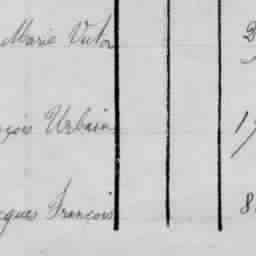 Marie Victor
çois Urbain 17
cques François 8